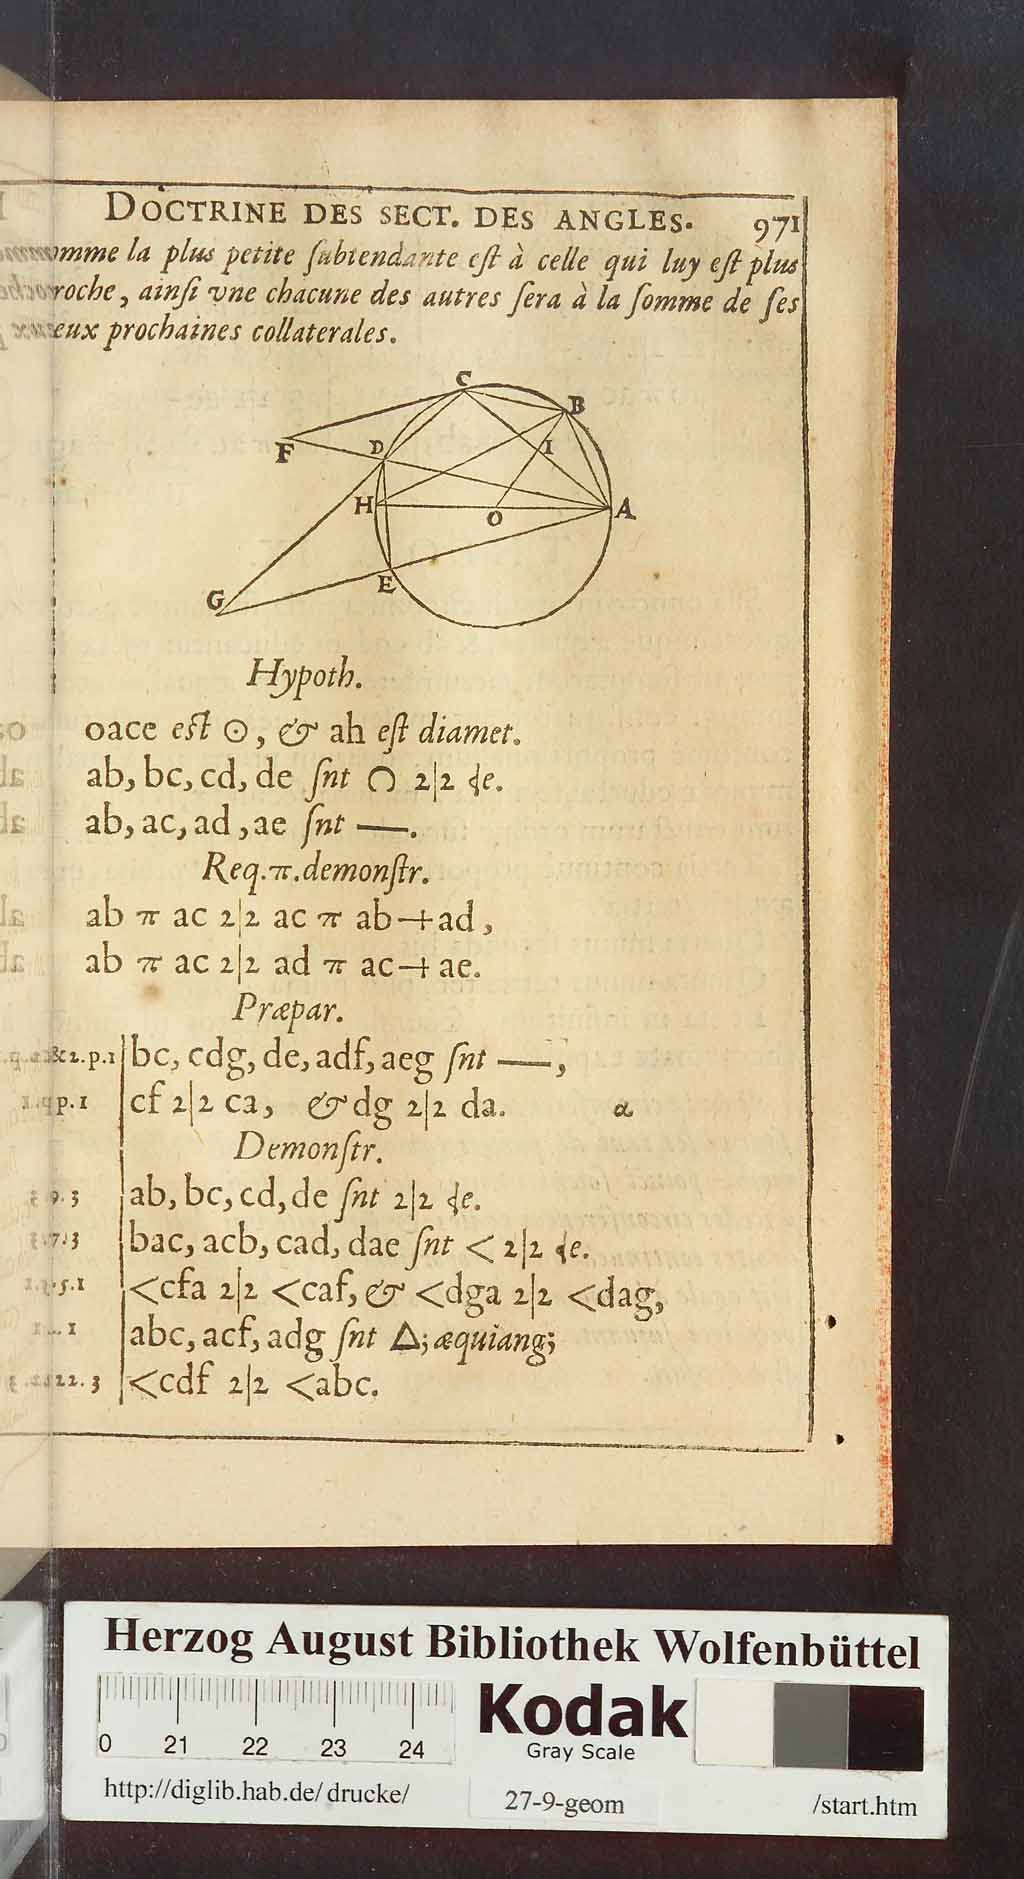 DOCTRINE DES SECT. DES ANGLES. 971
omme la plus petite ſubtendante eſt à celle qui luy eſt plus
roche, ainſi vne chacune des autres ſera à la ſomme de ſes
eux prochaines collaterales.
C
B
F D I
H O A
E
G
Hypoth.
oace eſt ⊙, & ah eſt diamet.
ab, bc, cd, de ſnt ∩ 2|2 ɖe.
ab, ac, ad, ae ſnt —.
Req. π. demonſtr.
ab π ac 2|2 ac π ab + ad,
ab π ac 2|2 ad π ac + ae.
Præpar.
&2.p.1 | bc, cdg, de, adf, aeg ſnt —,
p.1 | cf 2|2 ca, & dg 2|2 da. α
Demonſtr.
9.3 | ab, bc, cd, de ſnt 2|2 ɖe.
7.3 | bac, acb, cad, dae ſnt < 2|2 ɖe.
5.1 | <cfa 2|2 <caf, & <dga 2|2 <dag,
1 | abc, acf, adg ſnt △; æquiang;
22.3 | <cdf 2|2 <abc.
Herzog August Bibliothek Wolfenbüttel
Kodak
Gray Scale
0 21 22 23 24
http://diglib.hab.de/drucke/ 27-9-geom /start.htm